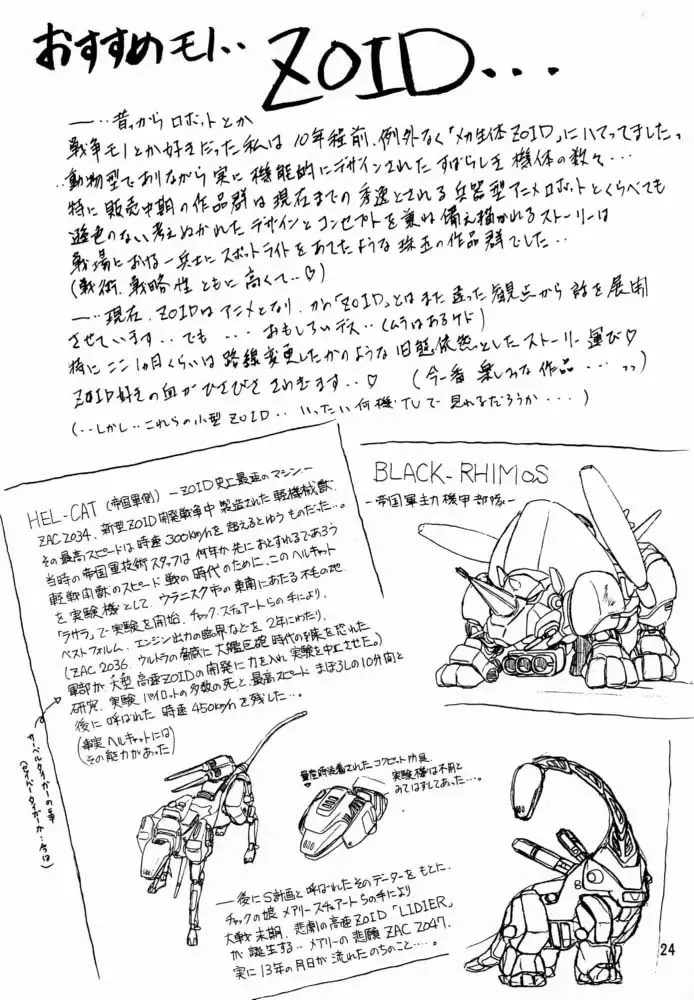 おすすめモノ‥ ZOID...
―‥昔っから ロボットとか
戦争モノとか好きだった私は 10年程前、例外なく「メカ生体ZOID」にハマってましたっ
‥動物型でありながら実に 機能的にデザインされた すばらしき 機体の数々・・・
特に 販売中期の作品群は 現在までの 秀逸とされる兵器型アニメロボットとくらべても
遜色のない 考えぬかれた デザインとコンセプトを 兼ね備え描かれるストーリーは
戦場における 一兵士に スポットライトを あてたような 珠玉の作品群でした‥
(戦術、戦略性 ともに 高くて‥♡)
―‥現在、ZOIDは アニメとなり、かの「ZOID」とは また 違った 観点から 話を 展開
させています‥ でも ・・・ おもしろいデス‥(ムラはあるケド)
特に ここ1ヵ月くらいは 路線変更したかのような 旧態依然としたストーリー運び♡
ZOID好きの血が ひさびさ さわぎます‥♡ (今一番 楽しみな作品 ・・・ っっ)
(‥しかし‥これらの小型 ZOID‥ いったい何機 TVで 見れるだろうか・・・)
HEL-CAT (帝国軍側) ―ZOID史上最速のマシン―
ZAC2034、新型ZOID開発戦争中 製造された 軽機械獣、
その最高スピードは時速300km/hを超えるとゆうものだった‥。
当時の帝国軍技術スタッフは 何年か先におとずれるであろう
軽戦闘獣のスピード戦の時代のために、このヘルキャット
を実験機として、ウラニスク市の東南にあたる不毛の地、
「ラサラ」で実験を開始、チャック・スチュアートらの手により、
ベストフォルム、エンジン出力の臨界などを 2年にわたり、
(ZAC2036、ウルトラの脅威に大艦巨砲時代の到来を恐れた
軍部が、大型高速ZOIDの開発に力を入れ 実験を中止させた。)
研究、実験パイロットの多数の死と、最高スピード まぼろしの10分間と
後に呼ばれた 時速450km/hを残した‥。
(事実 ヘルキャットには
その能力があった)
サーベルタイガーの事
(セイバータイガーか‥今は)
BLACK-RHIMOS
―帝国軍主力機甲部隊―
量産時装着されたコクピット防具、
実験機は不用と
みてはずしてあった‥。
―後にS計画と呼ばれたそのデーターをもとに、
チャックの娘 メアリー・スチュアートらの手により
大戦末期、悲劇の高速ZOID「LIDIER」
が誕生する‥ メアリーの悲願 ZAC2047、
実に13年の月日が流れたのちのこと‥‥。
24